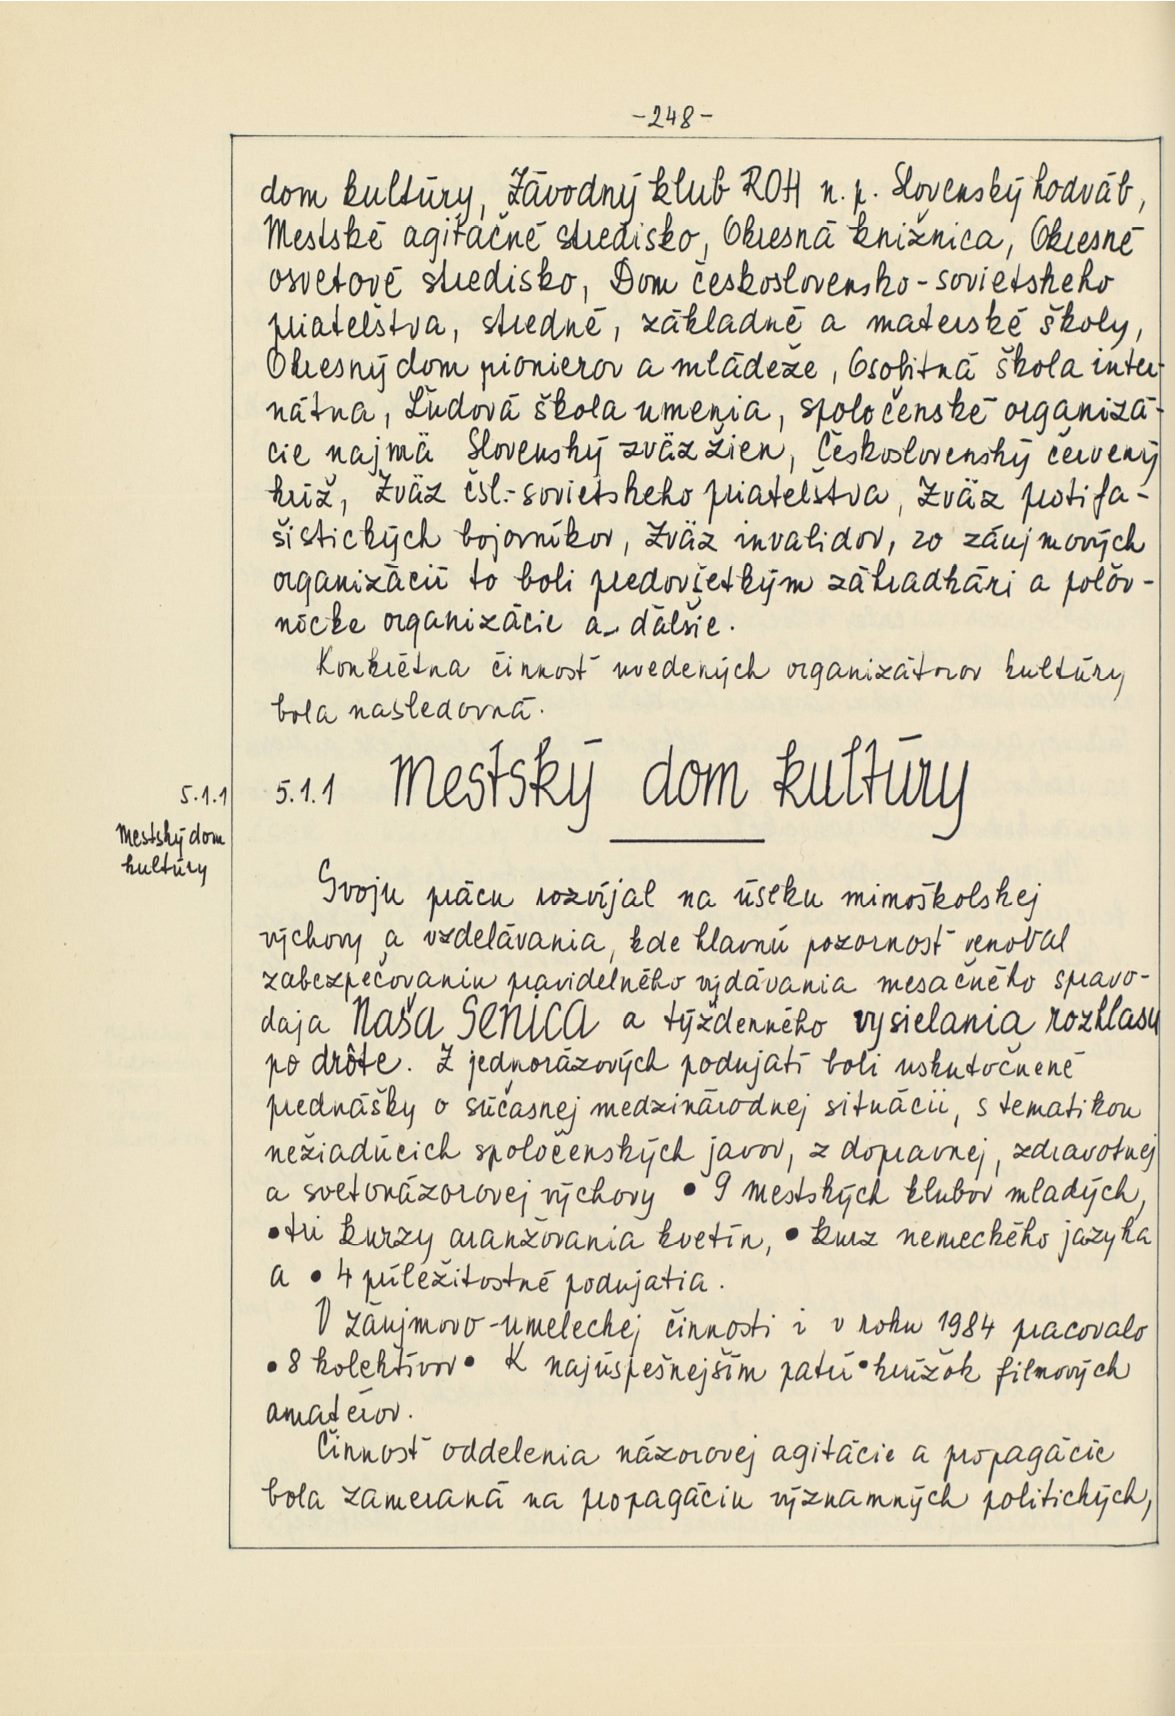 -248-
dom kultúry, Závodný klub ROH n. p. Slovenský hodváb,
Mestské agitačné stredisko, Okresná knižnica, Okresné
osvetové stredisko, Dom československo-sovietskeho
priateľstva, stredné, základné a materské školy,
Okresný dom pionierov a mládeže, Osobitná škola inter-
nátna, Ľudová škola umenia, spoločenské organizá-
cie najmä Slovenský zväz žien, Československý červený
kríž, Zväz čsl.-sovietskeho priateľstva, Zväz protifa-
šistických bojovníkov, Zväz invalidov, zo záujmových
organizácií to boli predovšetkým záhradkári a poľov-
nícke organizácie a ďalšie.
Konkrétna činnosť uvedených organizátorov kultúry
bola nasledovná.
5.1.1 Mestský dom kultúry
5.1.1
Mestský dom
kultúry
Svoju prácu rozvíjal na úseku mimoškolskej
výchovy a vzdelávania, kde hlavnú pozornosť venoval
zabezpečovaniu pravidelného vydávania mesačného spravo-
daja Naša Senica a týždenného vysielania rozhlasu
po drôte. Z jednorázových podujatí boli uskutočnené
prednášky o súčasnej medzinárodnej situácii, s tematikou
nežiadúcich spoločenských javov, z dopravnej, zdravotnej
a svetonázorovej výchovy • 9 mestských klubov mladých,
• tri kurzy aranžovania kvetín, • kurz nemeckého jazyka
a • 4 príležitostné podujatia.
V záujmovo-umeleckej činnosti i v roku 1984 pracovalo
• 8 kolektívov • K najúspešnejším patrí • krúžok filmových
amatérov.
Činnosť oddelenia názorovej agitácie a propagácie
bola zameraná na propagáciu významných politických,